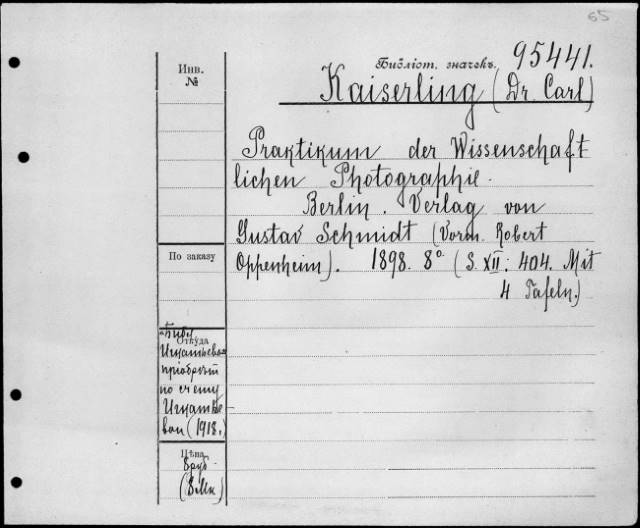 65
Инв.
№
Библіот. значекъ. 95441.
Kaiserling (Dr. Carl)
Praktikum der Wissenschaft
lichen Photographie.
Berlin. Verlag von
Gustav Schmidt (Vorm. Robert
Oppenheim). 1898. 8° (S. XII: 404. Mit
4 Tafeln.)
По заказу
Откуда
пріобрѣт
по счету
(1918.)
Цѣна